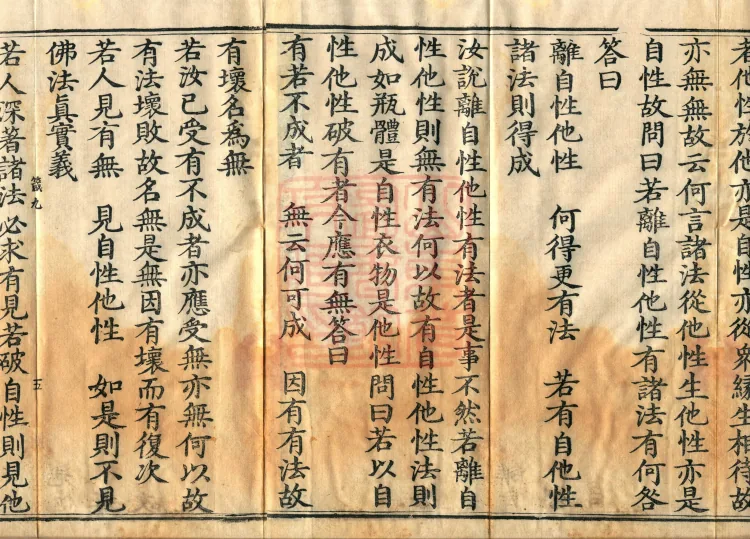 者他性於他亦是自性亦從衆緣生相待故
亦無無故云何言諸法從他性生他性亦是
自性故問曰若離自性他性有諸法有何咎
答曰
離自性他性 何得更有法 若有自他性
諸法則得成
汝說離自性他性有法者是事不然若離自
性他性則無有法何以故有自性他性法則
成如瓶體是自性衣物是他性問曰若以自
性他性破有者今應有無答曰
有若不成者 無云何可成 因有有法故
有壞名為無
若汝已受有不成者亦應受無亦無何以故
有法壞敗故名無是無因有壞而有復次
若人見有無 見自性他性 如是則不見
佛法眞實義
籤九 五
若人深著諸法必求有見若破自性則見他